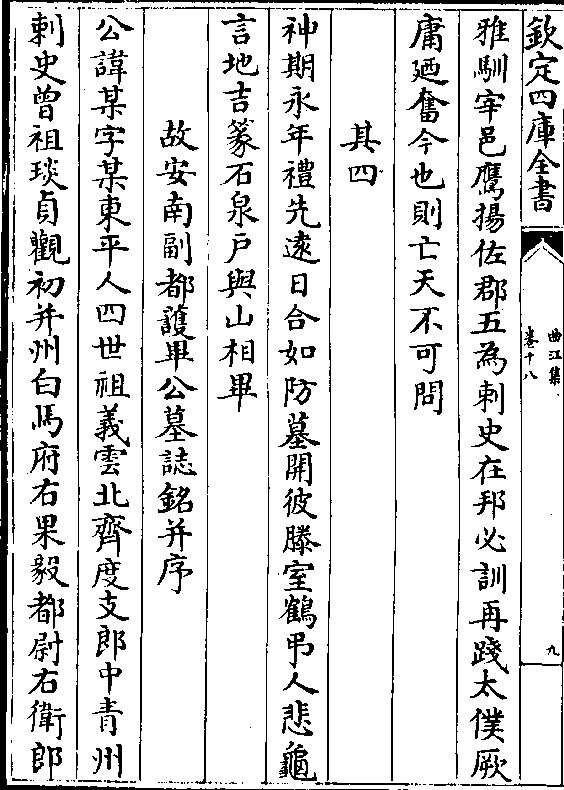 欽定四庫全書
曲江集
卷十八
九
雅馴宰邑鷹揚佐郡五為刺史在邦必訓再踐太僕厥
庸廼奮今也則亡天不可問
其四
神期永年禮先遠日合如防墓開彼滕室鶴弔人悲龜
言地吉篆石泉戶與山相畢
故安南副都護畢公墓誌銘并序
公諱某字某東平人四世祖義雲北齊度支郎中青州
刺史曾祖琰貞觀初并州白馬府右果毅都尉右衛郎